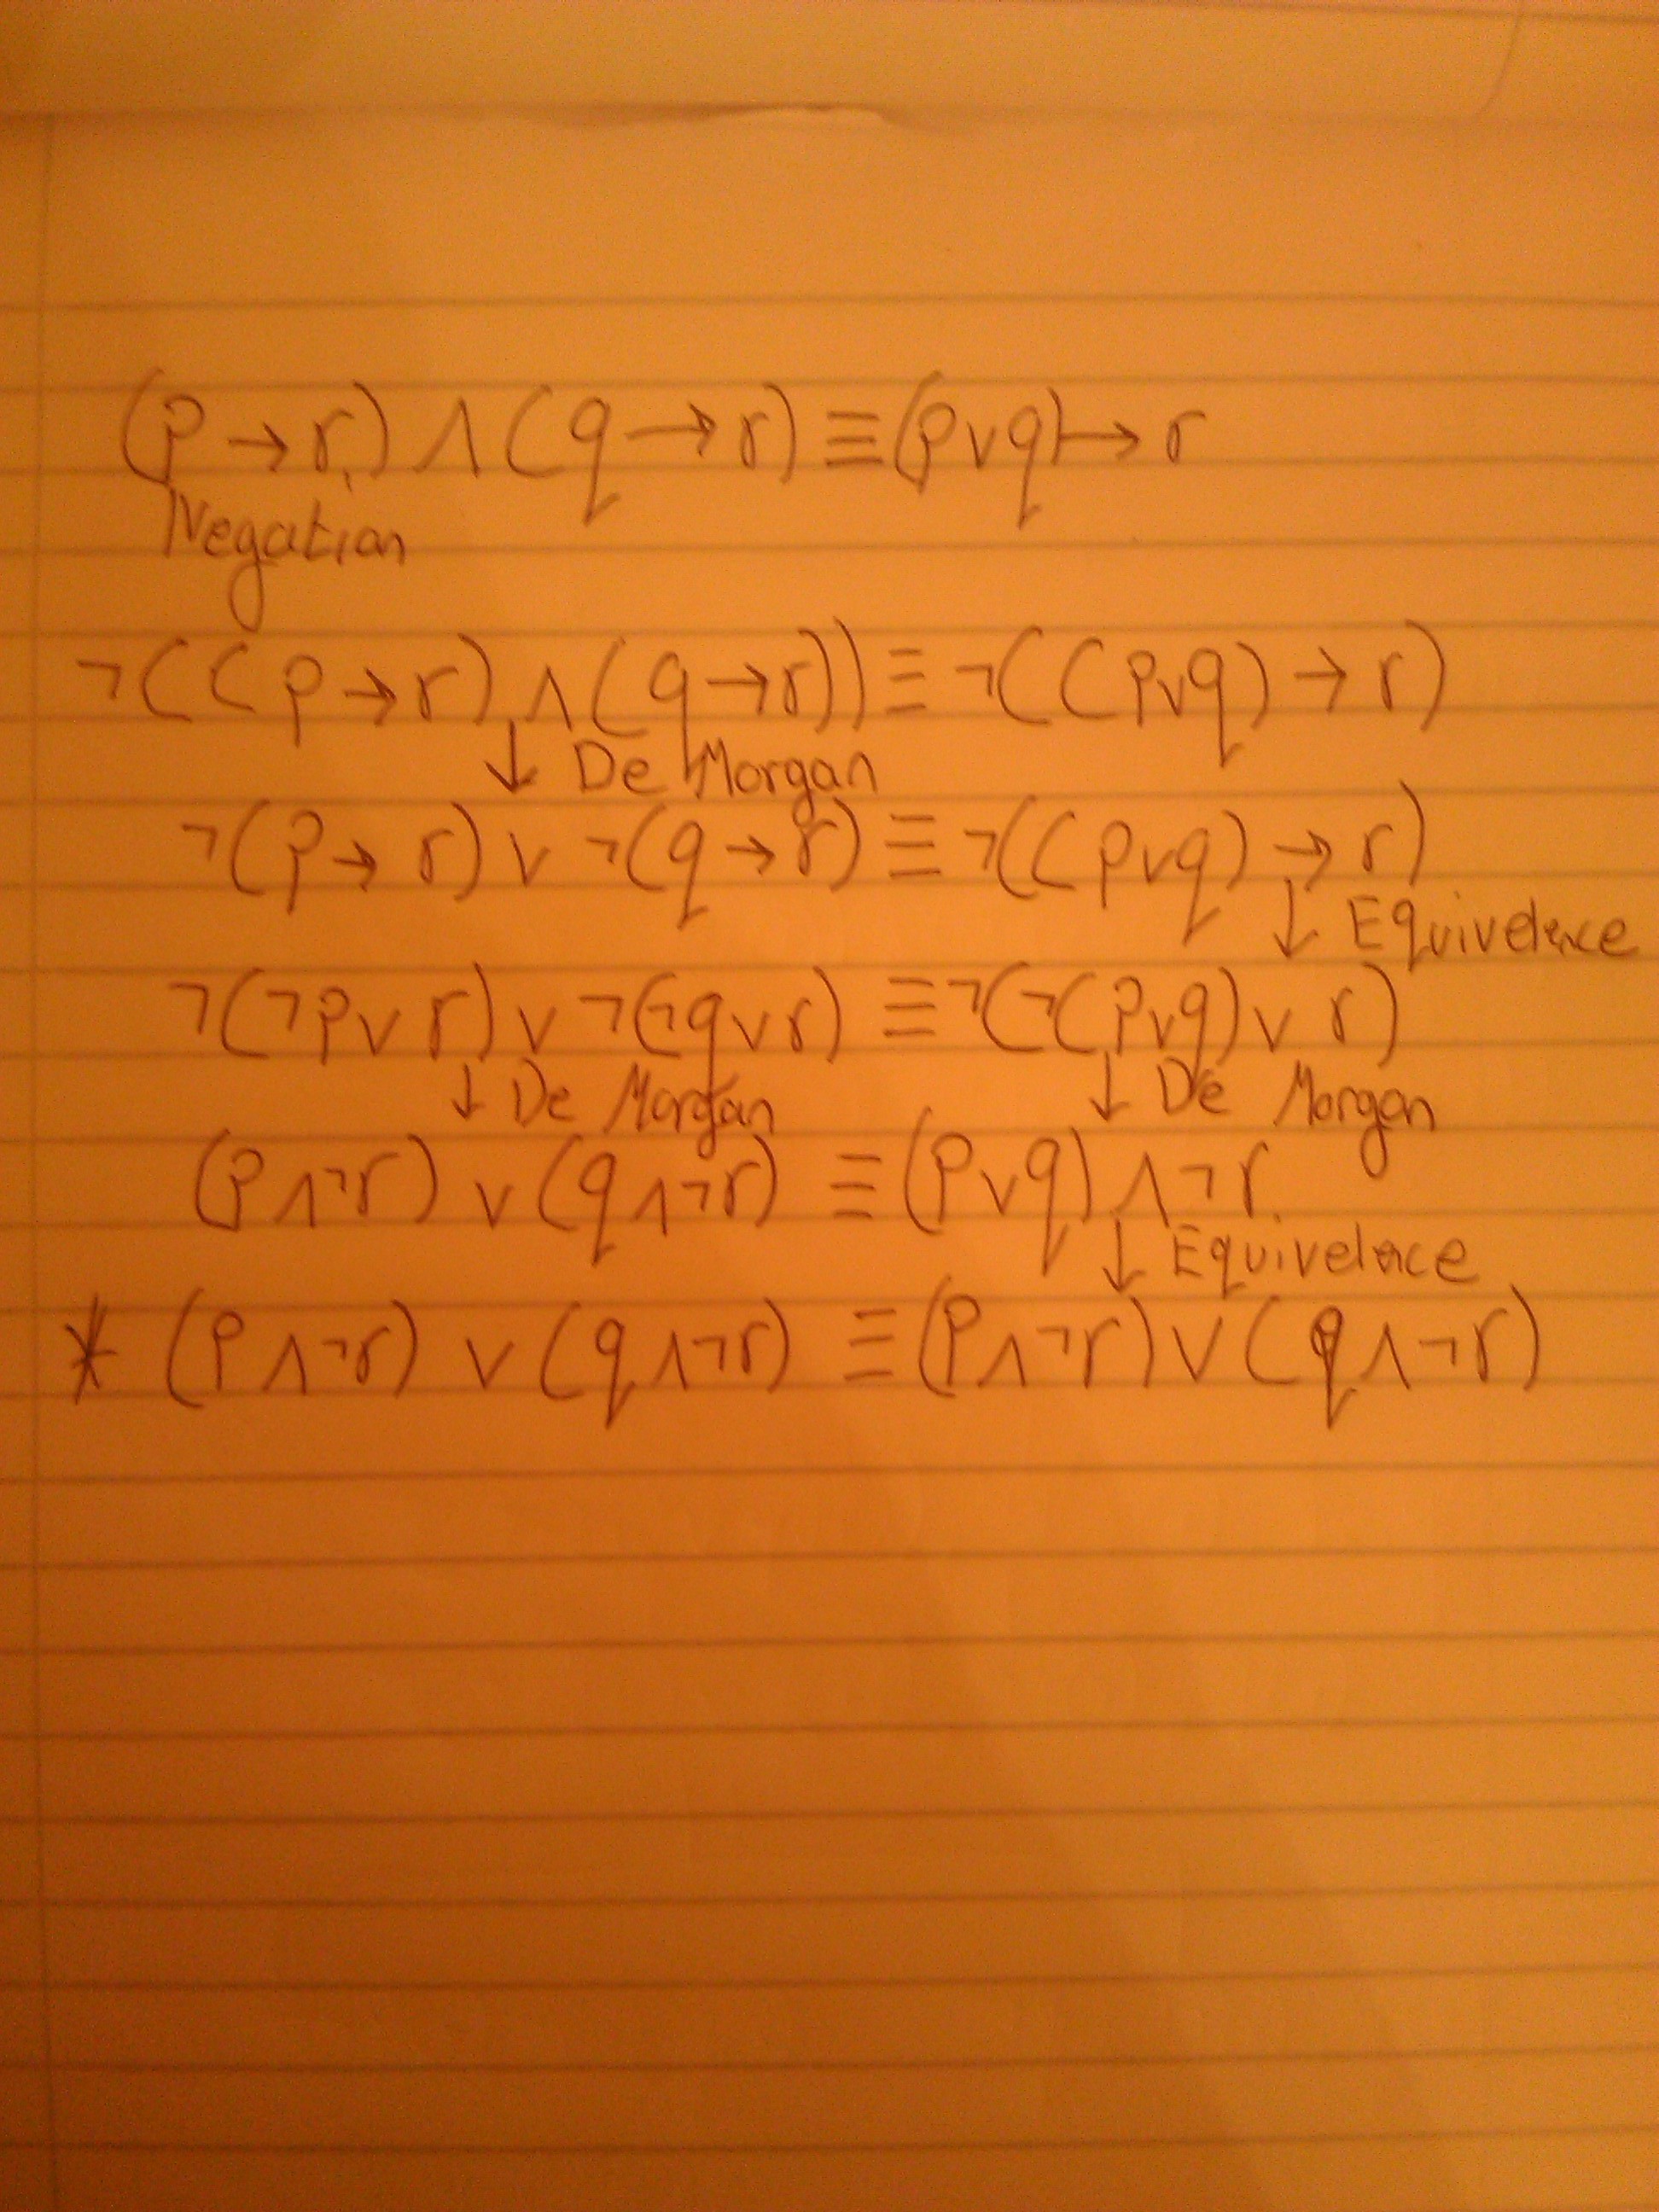 (p → r) ∧ (q → r) ≡ (p ∨ q) → r
Negation
¬((p → r) ∧ (q → r)) ≡ ¬((p ∨ q) → r)
↓ De Morgan
¬(p → r) ∨ ¬(q → r) ≡ ¬((p ∨ q) → r)
↓ Equivelence
¬(¬p ∨ r) ∨ ¬(¬q ∨ r) ≡ ¬(¬(p ∨ q) ∨ r)
↓ De Morgan ↓ De Morgan
(p ∧ ¬r) ∨ (q ∧ ¬r) ≡ (p ∨ q) ∧ ¬r
↓ Equivelence
* (p ∧ ¬r) ∨ (q ∧ ¬r) ≡ (p ∧ ¬r) ∨ (q ∧ ¬r)